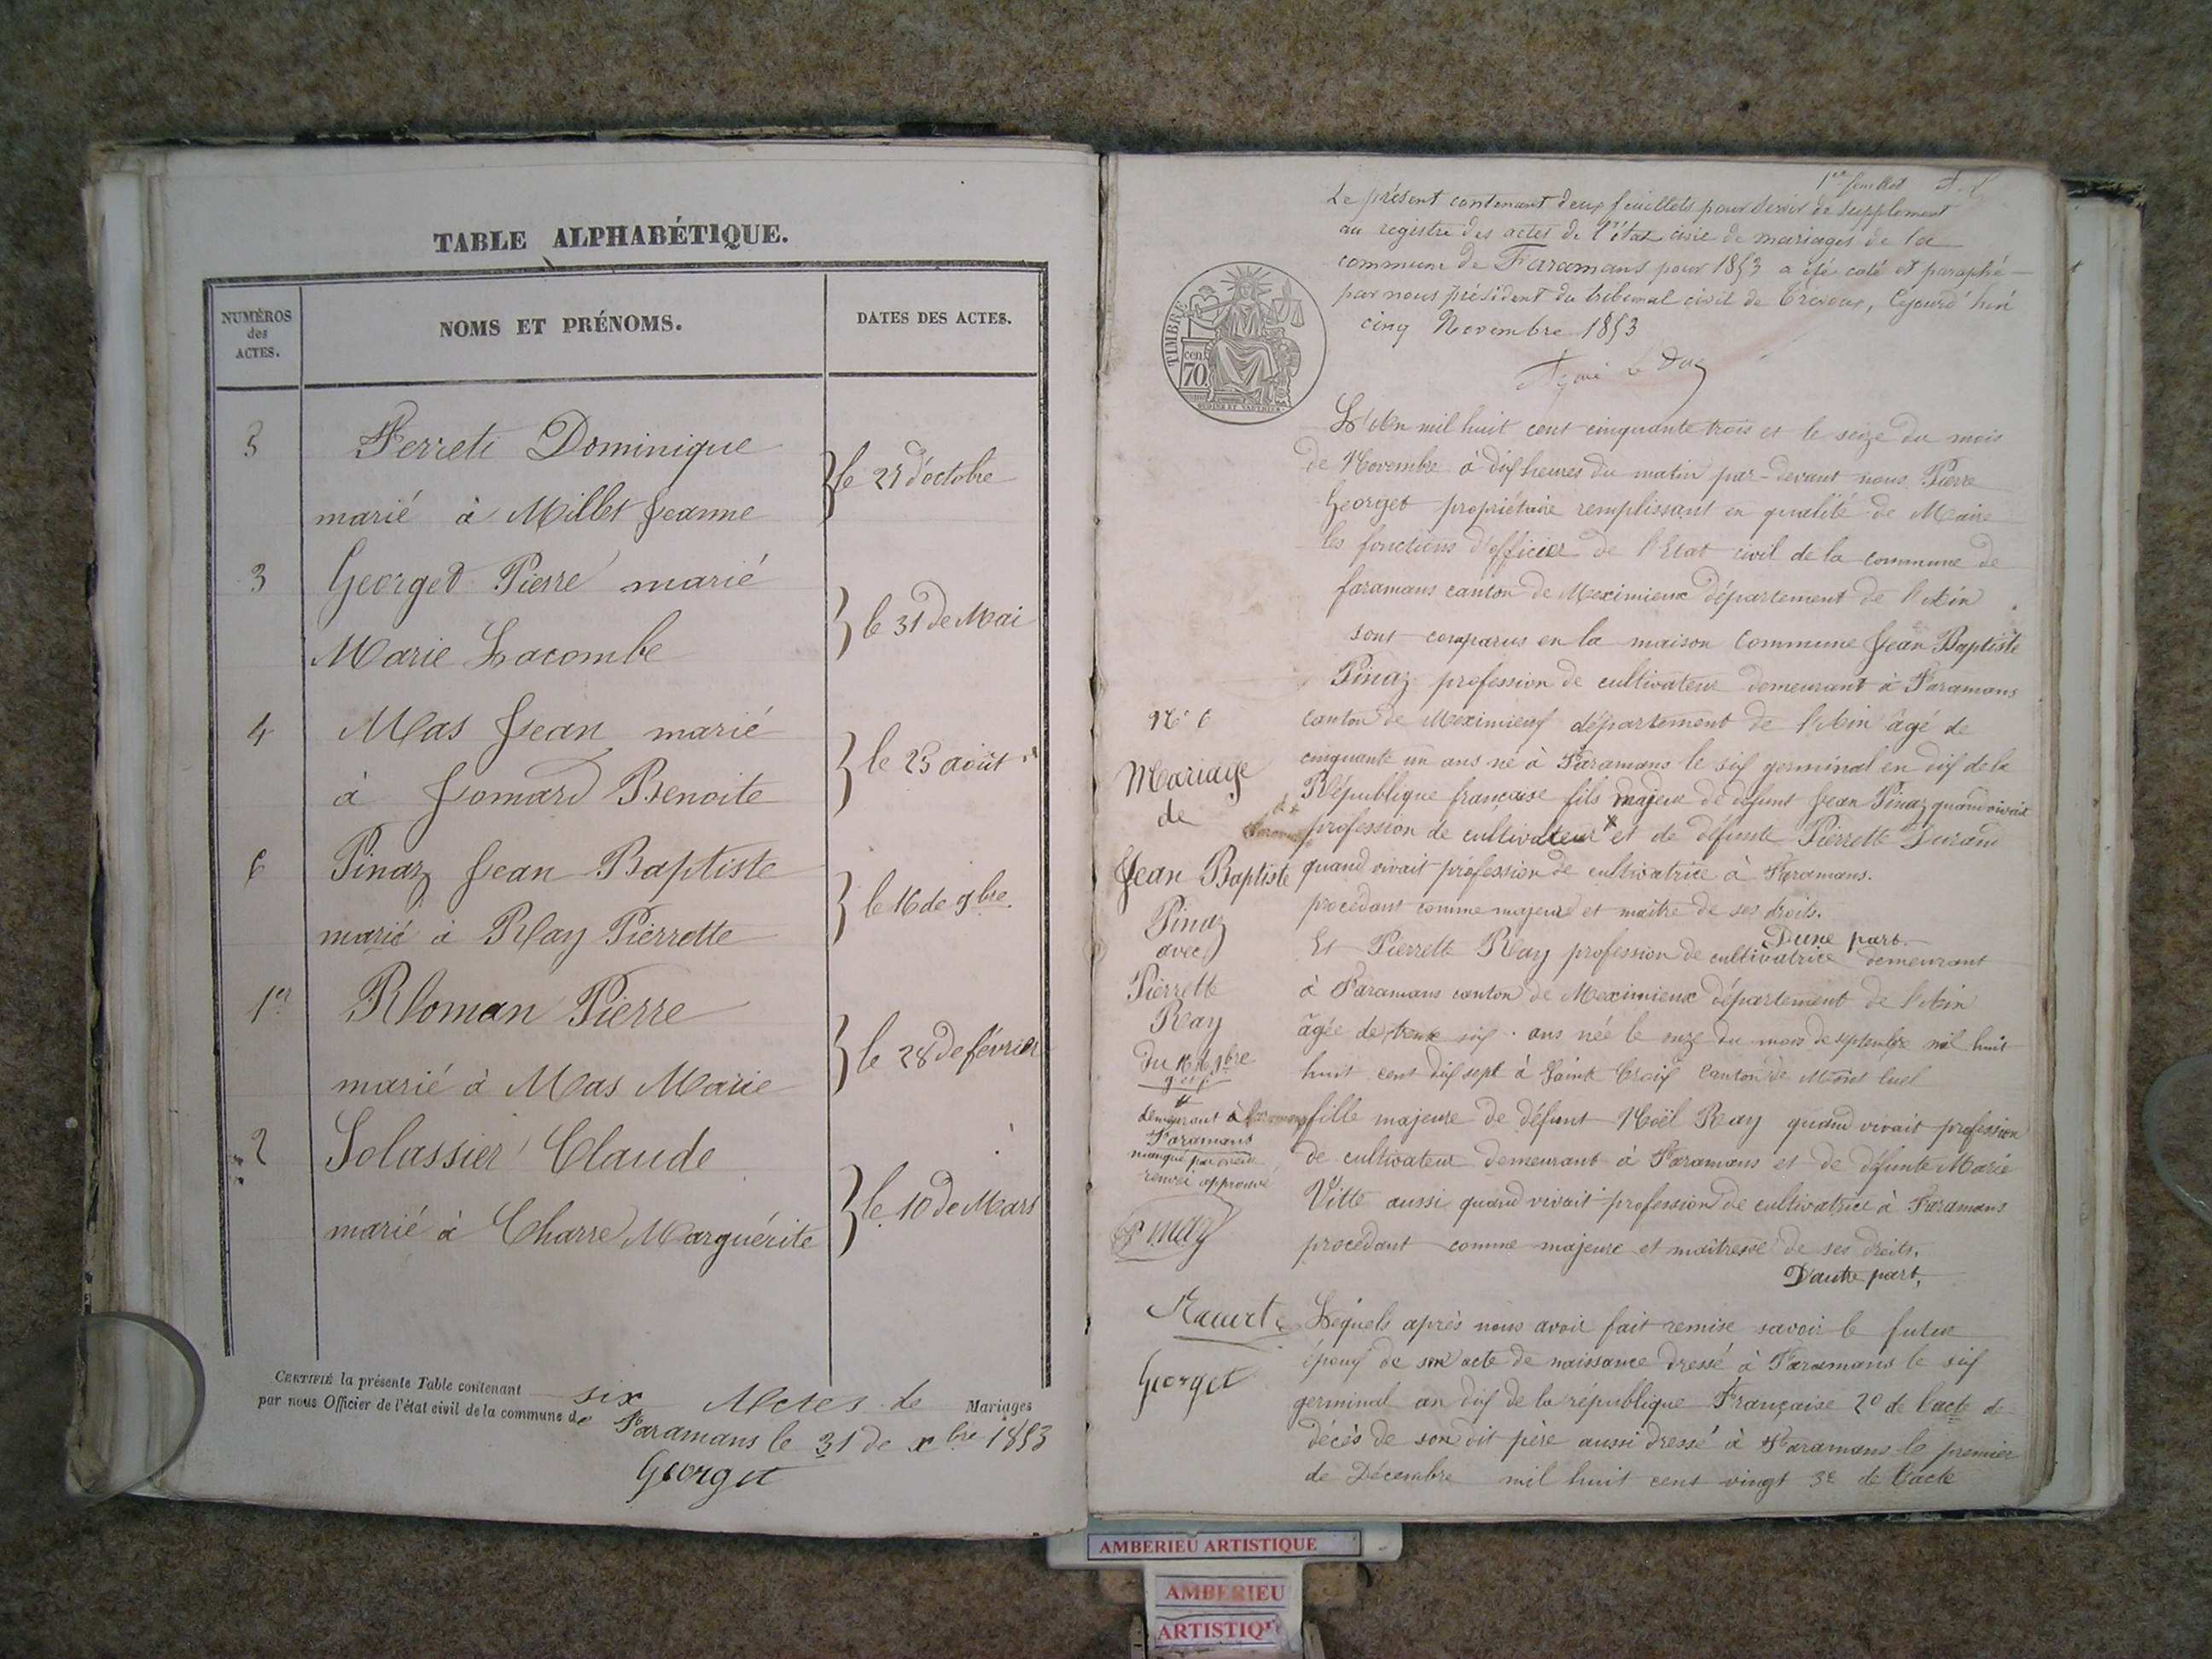 TABLE ALPHABÉTIQUE.
NUMÉROS des ACTES.
NOMS ET PRÉNOMS.
DATES DES ACTES.
5 Ferreti Dominique
marié à Millet Jeanne
le 27 d'octobre
3 Georget Pierre marié
Marie Lacombe
le 31 de Mai
4 Mas Jean marié
à Jomard Benoite
le 25 août
6 Pinaz Jean Baptiste
marié à Ray Pierrette
le 16 de 9bre
1er Roman Pierre
marié à Mas Marie
le 28 de février
2 Solassier Claude
marié à Charre Marguérite
le 10 de Mars
CERTIFIÉ la présente Table contenant six Actes de Mariages
par nous Officier de l'état civil de la commune de
Faramans le 31 de xbre 1853
Georget
1er feuillet
Le présent contenant deux feuillets pour servir de supplément
au registre des actes de l'état civil de mariages de la
commune de Faramans pour 1853 a été coté et paraphé
par nous président du tribunal civil de Trévoux, cejourd'hui
cinq Novembre 1853
TIMBRE
70 cen
L'An mil huit cent cinquante trois et le seize du mois
de Novembre à dix heures du matin par-devant nous Pierre
Georget propriétaire remplissant en qualité de Maire
les fonctions d'officier de l'Etat civil de la commune de
faramans canton de Meximieux département de l'Ain
sont comparus en la maison Commune Jean Baptiste
Pinaz profession de cultivateur demeurant à Faramans
canton de Meximieux département de l'Ain âgé de
cinquante un ans né à Faramans le six germinal en dix de la
République française fils majeur de défunt Jean Pinaz quand vivait
profession de cultivateur x et de défunte Pierrette Durand
quand vivait profession de cultivatrice à Faramans.
procédant comme majeur et maître de ses droits.
D'une part.
Et Pierrette Ray profession de cultivatrice demeurant
à Faramans canton de Meximieux département de l'Ain
âgée de trente six ans née le onze du mois de septembre mil huit
huit cent dix sept à Sainte Croix Canton de Mont luel
fille majeure de défunt Noël Ray quand vivait profession
de cultivateur demeurant à Faramans et de défunte Marie
Vitte aussi quand vivait profession de cultivatrice à Faramans
procédant comme majeure et maîtresse de ses droits.
D'autre part,
Léquels après nous avoir fait remise savoir le futur
époux de son acte de naissance dressé à Faramans le six
germinal an dix de la république Française 2º de l'acte de
décès de son dit père aussi dressé à Faramans le premier
de Décembre mil huit cent vingt 3º de l'acte
Nº 6
Mariage
de
Jean Baptiste
Pinaz
avec
Pierrette
Ray
du 16 de 9bre
demeurant à
Faramans
renvoi approuvé
Georget
AMBERIEU ARTISTIQUE
AMBERIEU
ARTISTIQUE